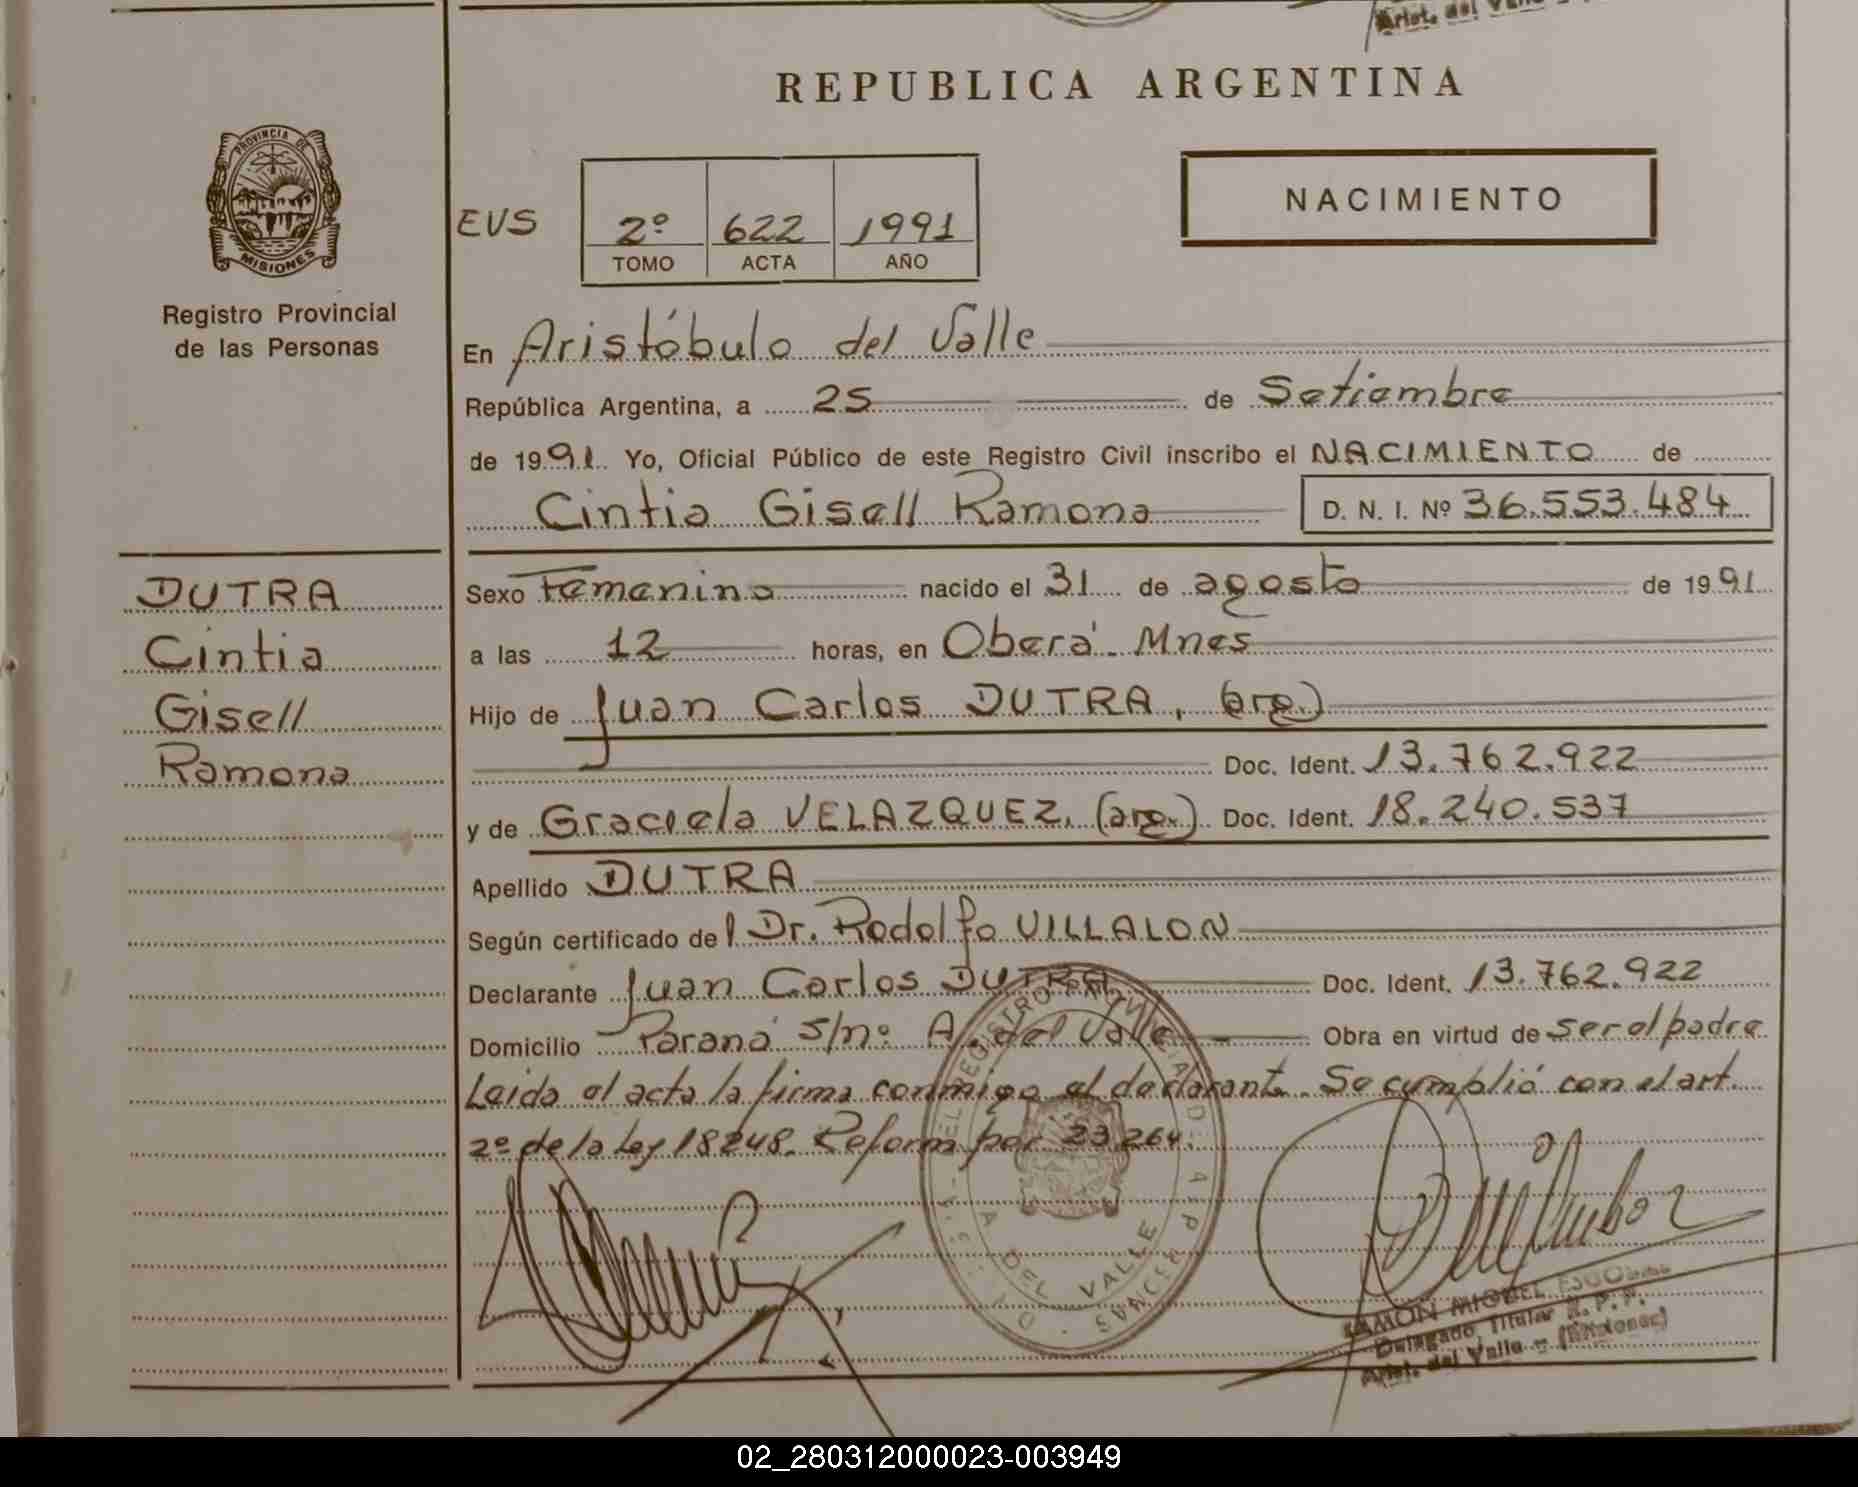 Arist. del Valle
REPUBLICA ARGENTINA
PROVINCIA DE
MISIONES
Registro Provincial
de las Personas
EVS
2º 622 1991
TOMO ACTA AÑO
NACIMIENTO
En Aristóbulo del Valle
República Argentina, a 25 de Setiembre
de 1991. Yo, Oficial Público de este Registro Civil inscribo el NACIMIENTO de
Cintia Gisell Ramona D. N. I. Nº 36.553.484
DUTRA
Cintia
Gisell
Ramona
Sexo Femenino nacido el 31 de agosto de 1991
a las 12 horas, en Oberá - Mnes
Hijo de Juan Carlos DUTRA, (arg.)
Doc. Ident. 13.762.922
y de Graciela VELAZQUEZ, (arg.) Doc. Ident. 18.240.537
Apellido DUTRA
Según certificado del Dr. Rodolfo VILLALON
Declarante Juan Carlos DUTRA Doc. Ident. 13.762.922
Domicilio Paraná s/nº A. del Valle - Obra en virtud de ser el padre
Leida el acta la firma conmigo el declarante. Se cumplió con el art.
2º de la Ley 18248. Reform por 23264.
DEL REGISTRO PROVINCIAL DE LAS PERSONAS
A. DEL VALLE
RAMON MIGUEL ESCOBAR
Delegado Titular R. P. P.
Arist. del Valle - (Misiones)
02_280312000023-003949